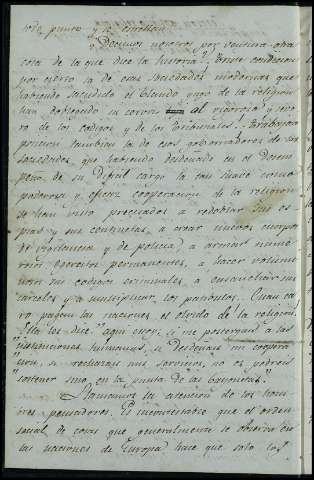 todo punto y la estrellan.
¿Decimos nosotros por ventura otra
cosa de la que dice la historia? Triste condicion
por cierto la de esas sociedades modernas que
habiendo sacudido el blando yugo de la religion
han doblegado su cerviz al rigoroso y seve
ro de los codigos y de los tribunales! Trabajosa
posicion tambien la de esos gobernadores de las
sociedades, que habiendo desdeñado en el desem
peño de su dificil cargo la tan suave como
poderosa y eficaz cooperacion de la religion
se han visto precisados a redoblar sus es
pias y sus centinelas, a crear nuevos cuerpos
de vigilancia y de policia, a armar nume
rosos egercitos permanentes, a hacer volumi
nosos sus codigos criminales, a ensanchar sus
carceles y a multiplicar los patibulos. Cuan ca
ro pagan las naciones el olvido de la religion!
Ella les dice: "aqui estoy; si me postergais a las
"instituciones humanas, si desdeñais mi coopera
"cion, si rechazais mis servicios, no os podreis
"sostener sino en la punta de las bayonetas."
Llamamos la atencion de los hom
bres pensadores. Es incontestable que el orden
social de cosas que generalmente se observa en
las naciones de Europa hace que solo los